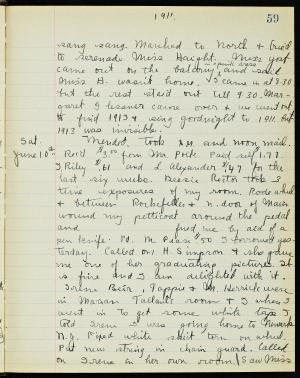 1911.
59
sang sang. Marched to North & tried
to serenade Miss Haight. Miss
came out on the balcony and said
Miss H. wasn't home. I came in at 8:30
but the rest staid out till 9:30. Mar-
garet & came over & we went out
to find 1913 & sing goodnight to 1911. But
1913 was invisible.
Sat. Mended. Took and noon mail.
June 10th Rec'd $3.00 from Mr. Paid self 1.77.
J. Riley .61 and L. Alexander .47 for the
last six weeks. Bessie took 3
time exposures of my room. Rode wheel
& between Rockefeller & n. door of Main
wound my petticoat around the pedal
and freed me by aid of a
pen knife. Pd. M. .50 I borrowed yes-
terday. Called on H. Simpson & she gave
me one of her graduating pictures. It
is fine and I am delighted with it.
Irene Beir, & M. Herrick were
in Marian room & I when I
went in to get some white tape I
told Irene I was going home to Newark
N.J. Fixed white skirt torn on wheel.
Put new string in chain guard. Called
on Irene in her own room. Saw Miss